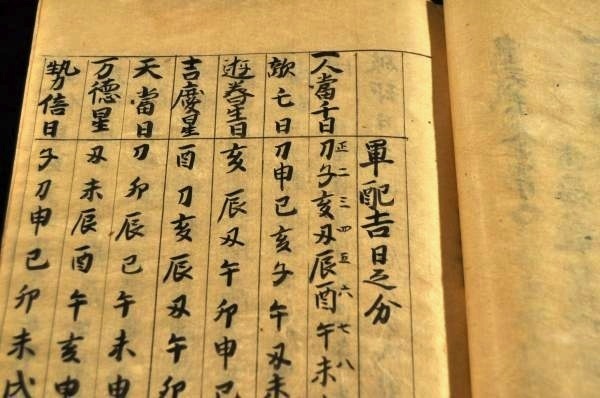 軍配吉日之分
正二三四五六七八
一人當千日 刀子亥丑辰酉午未
亡日 刀申巳亥子午丑未
日 亥辰丑午卯申巳
吉慶星 酉刀亥辰丑午卯
天當日 刀卯辰巳午未申
万德星 丑未辰酉午亥申
勢倍日 子刀申巳卯未戌